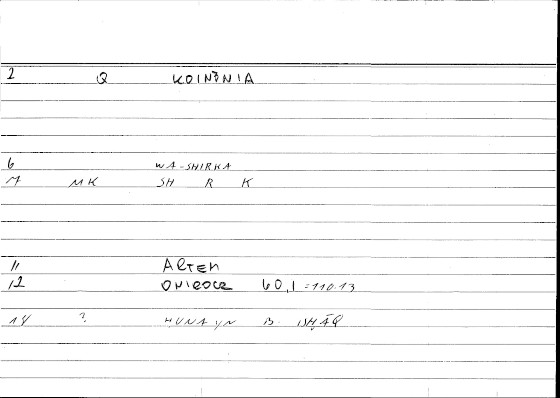 2 Q KOINŌNIA
6 WA-SHIRKA
7 MK SH R K
11 ARTEM
12 ONIROCR 60,1 = 110.13
14 ? HUNAYN B. ISḤĀQ